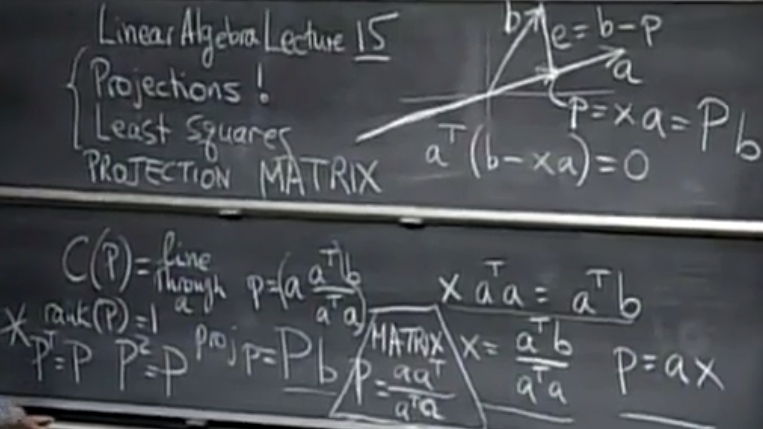 Linear Algebra Lecture 15
Projections !
Least Squares
PROJECTION MATRIX
b
e = b - p
a
p = x a = Pb
aᵀ(b - xa) = 0
C(P) = line through a
rank(P) = 1
* Pᵀ = P P² = P
p = (a aᵀb / aᵀa)
proj p = Pb
MATRIX
P = aaᵀ / aᵀa
x aᵀa = aᵀb
x = aᵀb / aᵀa
p = ax